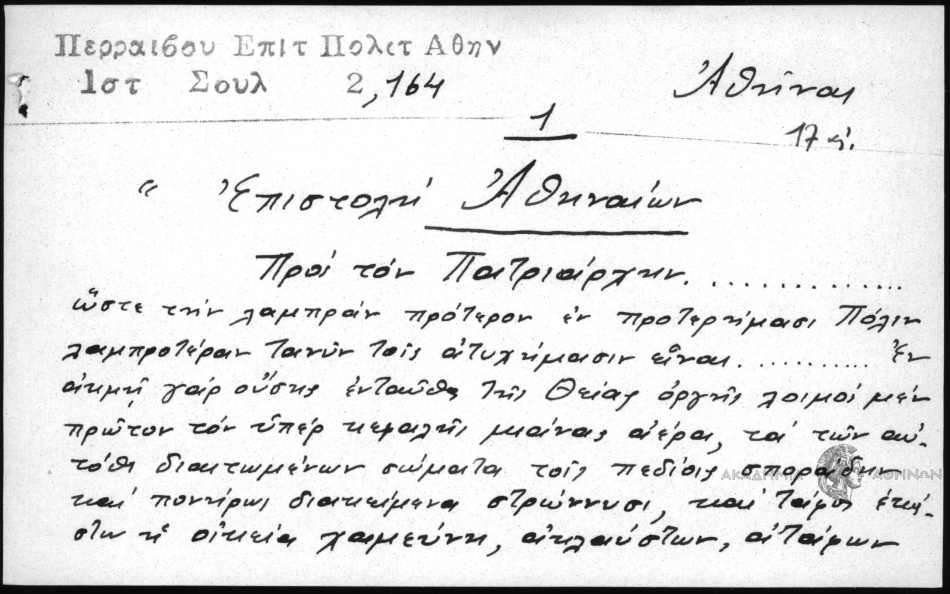 Περραιβου Επιτ Πολετ Αθην
Ιστ Σουλ 2,164
Ἀθῆναι
1
17 αἰ.
“ Ἐπιστολή Ἀθηναίων
Πρός τόν Πατριάρχην.............
ὥστε τήν λαμπράν πρότερον ἐν προτερήμασι Πόλιν
λαμπροτέραν τανῦν τοῖς ἀτυχήμασιν εἶναι.......... Ἐν
ἀκμῇ γάρ οὔσης ἐνταῦθα τῆς Θείας ὀργῆς λοιμός μέν
πρῶτον τόν ὑπέρ κεφαλῆς μιάνας ἀέρα, τά τῶν αὐ-
τόθι διαιτωμένων σώματα τοῖς πεδίοις σποράδην
καί πονήρως διακείμενα στρώννυσι, καί τάφος ἑκά-
στω ἡ οἰκεία χαμεύνη, ἀκλαύστων, ἀτάφων
ΑΚΑΔΗΜΙΑ ΑΘΗΝΩΝ